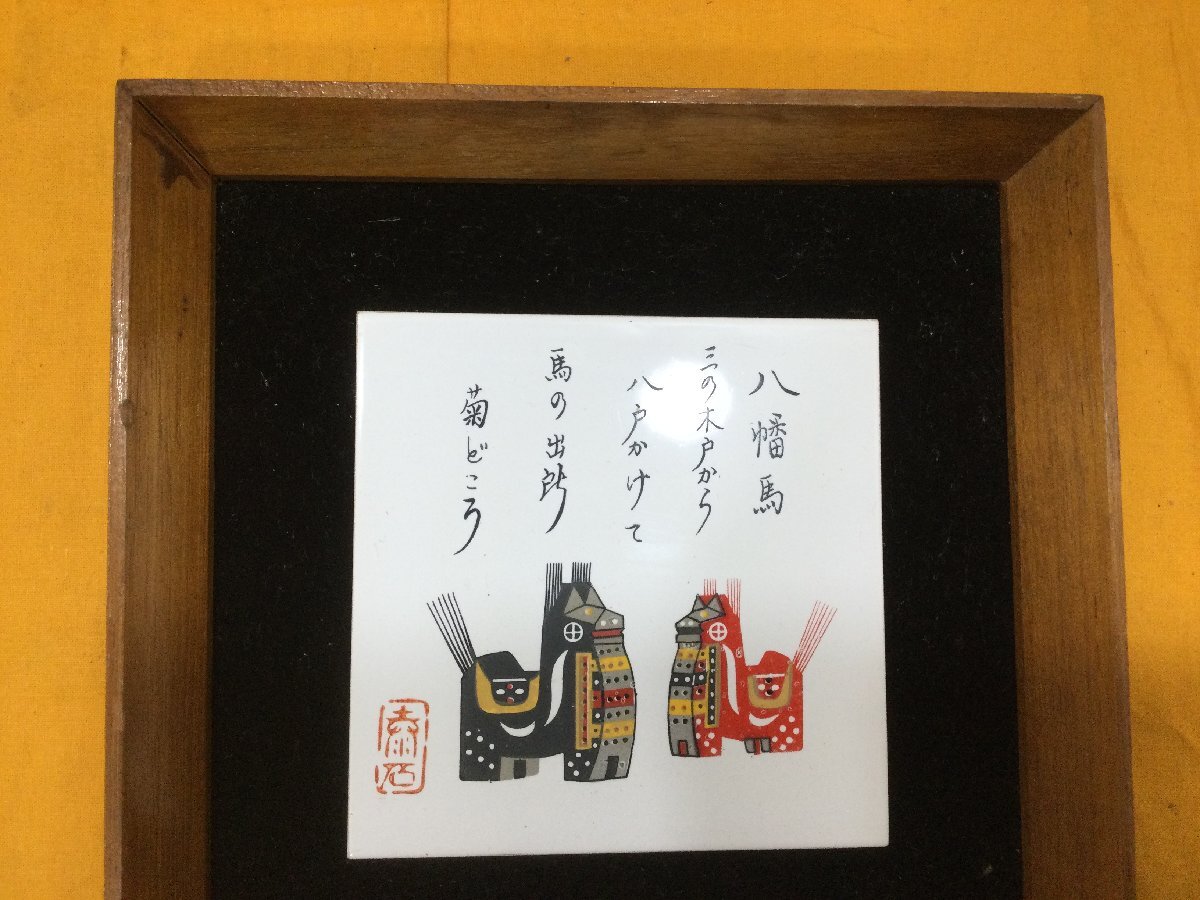 八幡馬
三の木戸から
八戸かけて
馬の出所
菊どころ